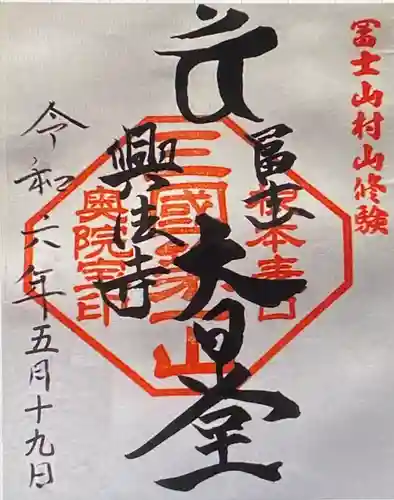 冨士山村山修験
冨士山
大日堂
興法寺
令和六年五月十九日
三國第一山
奥院宝印